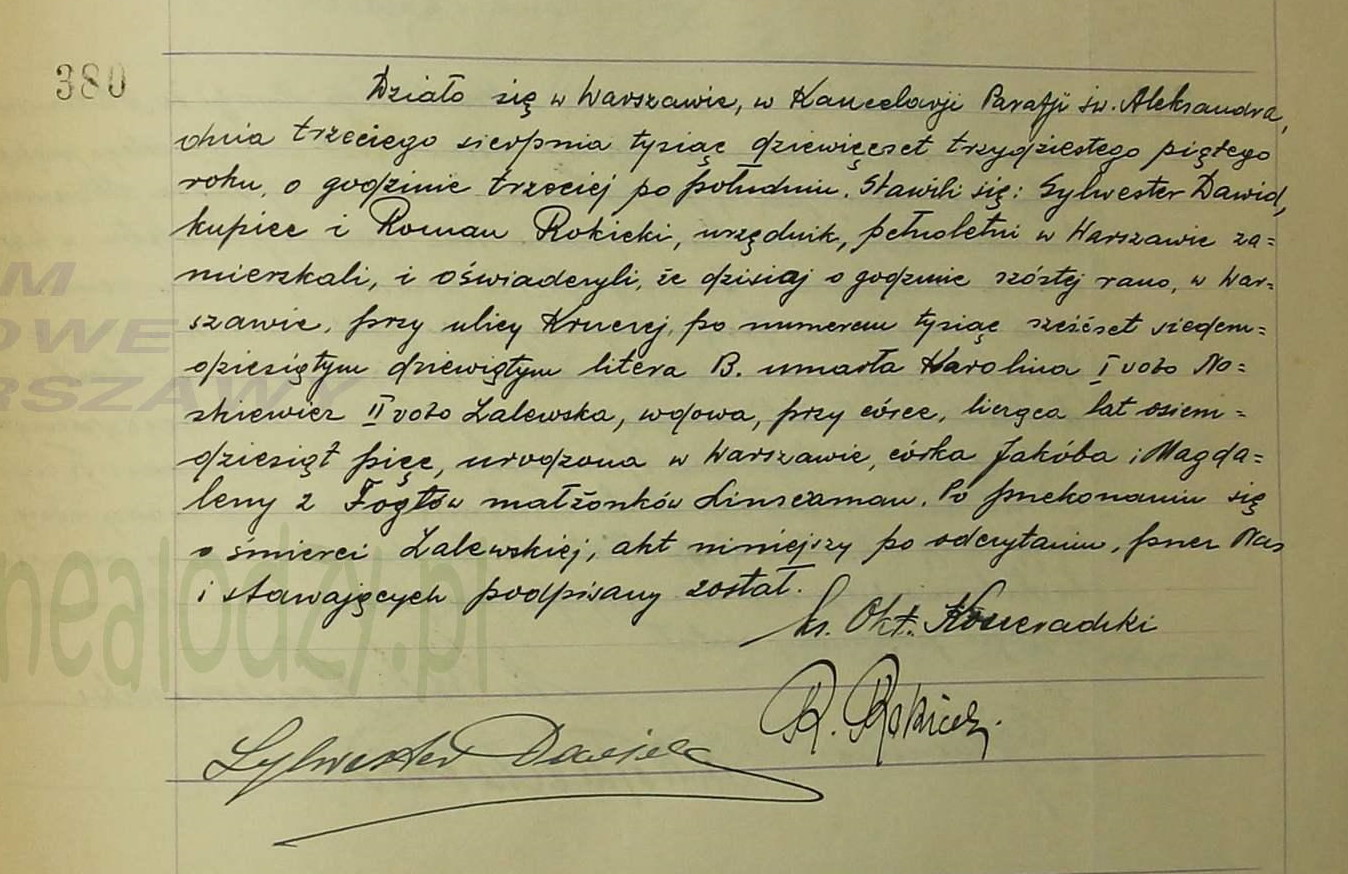 380
Działo się w Warszawie, w Kancelarji Parafji św. Aleksandra,
dnia trzeciego sierpnia tysiąc dziewięćset trzydziestego piątego
roku, o godzinie trzeciej po południu. Stawili się: Sylwester Dawid,
kupiec i Roman Rokicki, urzędnik, pełnoletni w Warszawie za=
mieszkali, i oświadczyli, że dzisiaj o godzinie szóstej rano, w War=
szawie, przy ulicy Kruczej, po numerem tysiąc sześćset siedem=
dziesiątym dziewiątym litera B. umarła Karolina I voto No=
skiewicz II voto Zalewska, wdowa, przy córce, licząca lat osiem=
dziesiąt pięć, urodzona w Warszawie, córka Jakóba i Magda=
leny z Fogtów małżonków Linszaman. Po przekonaniu się
o śmierci Zalewskiej, akt niniejszy po odczytaniu, przez Nas
i stawających podpisany został.
ks. Okt.
R. Rokicki.
Sylwester Dawid
M
OWE
RSZAWY
nealodzy.pl